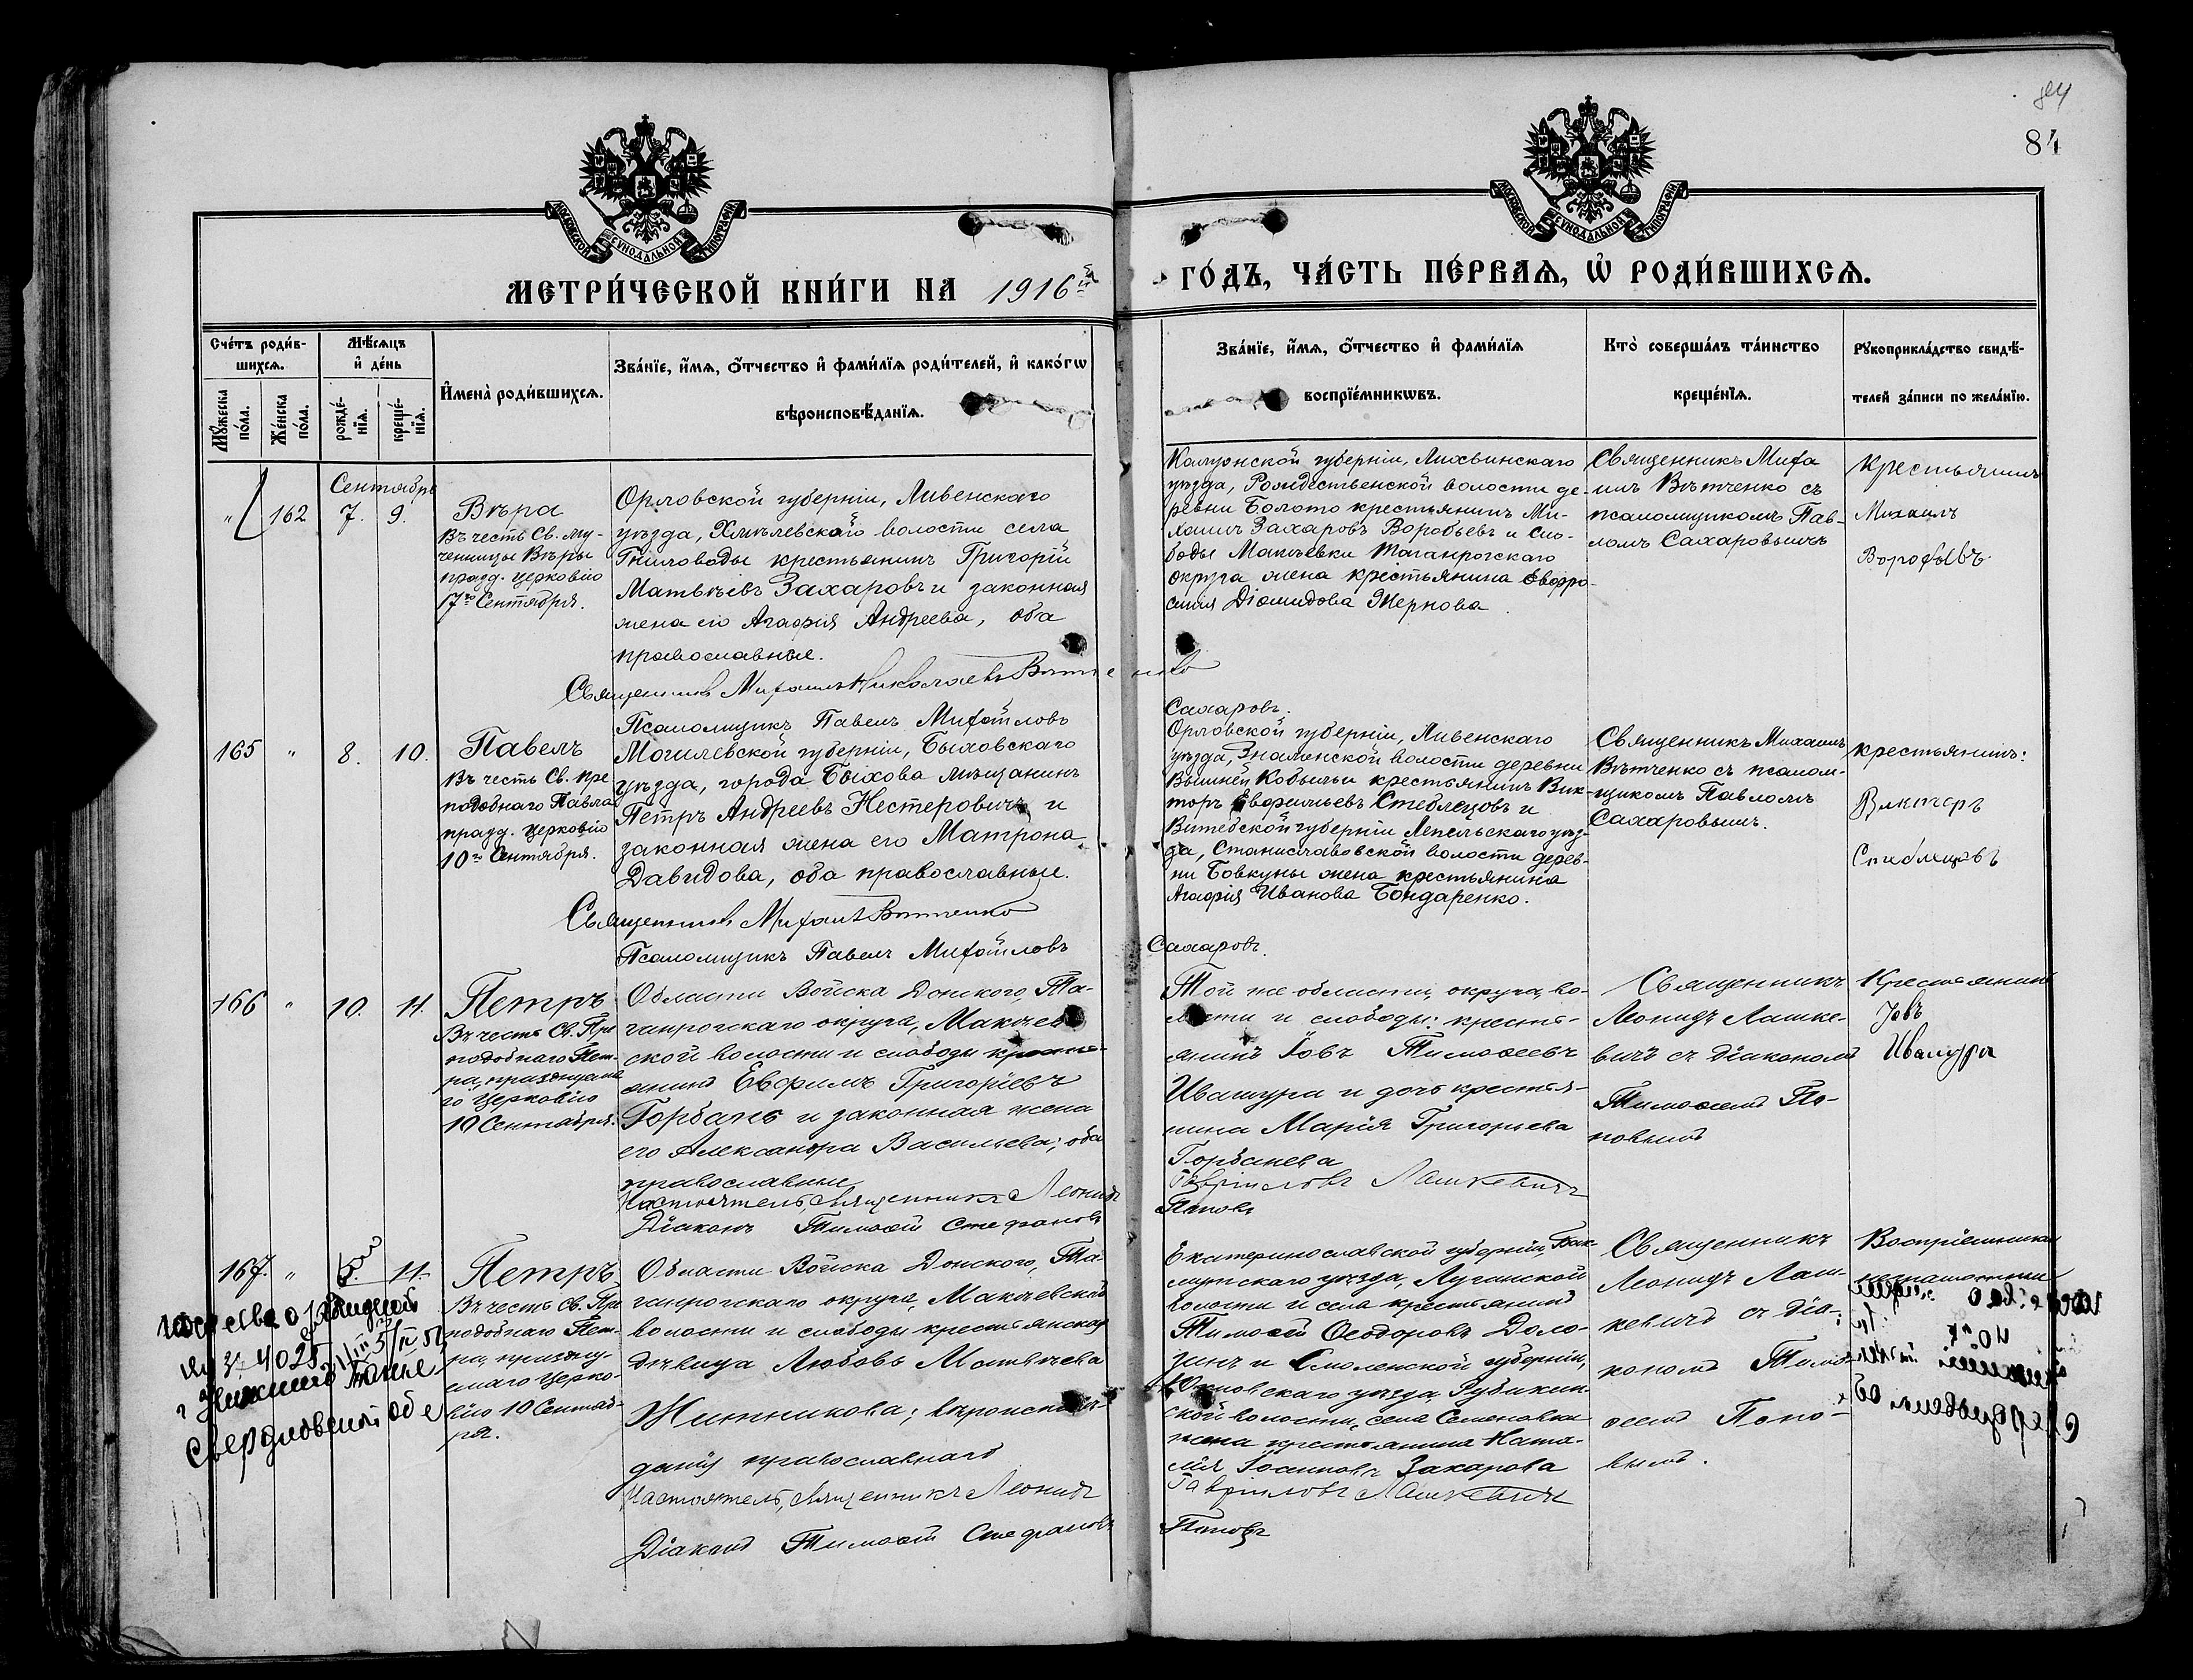 84
84
МОСКОВСКОЙ СѴНОДАЛЬНОЙ ТИПОГРАФІИ
МОСКОВСКОЙ СѴНОДАЛЬНОЙ ТИПОГРАФІИ
МЕТРИ́ЧЕСКОЙ КНИ́ГИ НА 1916й
ГО́ДЪ, ЧА́СТЬ ПЕ́РВАѦ, Ѡ҆ РОДИ́ВШИХСѦ.
Сче́тъ роди́в-
шихсѧ.
Мꙋ́жеска по́ла.
Же́нска по́ла.
Мѣ́сѧцъ
и҆ де́нь
рожде́-
нїѧ.
креще́-
нїѧ.
И҆мена̀ роди́вшихсѧ.
Зва́нїе, и҆́мѧ, ѻ҆́тчество и҆ фами́лїѧ роди́телей, и҆ како́гѡ
вѣроисповѣ́данїѧ.
Зва́нїе, и҆́мѧ, ѻ҆́тчество и҆ фами́лїѧ
воспрїе́мникѡвъ.
Кто̀ соверша́лъ та́инство
креще́нїѧ.
Рꙋкоприкла́дство свидѣ́-
телей за́писи по жела́нїю.
Сентябрь
" 162 7. 9.
Вѣра
Въ честь Св. му-
ченицы Вѣры
празд. церковію
17го Сентября.
Орловской губерніи, Ливенскаго
уѣзда, Хмѣлевской волости села
Гниловоды крестьянинъ Григорій
Матвѣевъ Захаровъ и законная
жена его Агафія Андреева, оба
православные.
Священникъ Михаилъ Николаевъ Вѣтченко
Псаломщикъ Павелъ Михайловъ
Калужской губерніи, Лихвинскаго
уѣзда, Рождественской волости де-
ревни Болото крестьянинъ Ми-
хаилъ Захаровъ Воробьевъ и сло-
боды Макѣевки Таганрогскаго
округа жена крестьянина Евфро-
синія Діомидова Жернова.
Сахаровъ.
Священникъ Миха
илъ Вѣтченко съ
псаломщикомъ Пав-
ломъ Сахаровымъ
Крестьянинъ
Михаилъ
Воробьевъ.
165 " 8. 10.
Павелъ
Въ честь Св. пре
подобнаго Павла
празд. церковію
10го Сентября.
Могилевской губерніи, Быховскаго
уѣзда, города Быхова мѣщанинъ
Петръ Андреевъ Нестеровичъ и
законная жена его Матрона
Давидова, оба православные.
Священникъ Михаилъ Вѣтченко
Псаломщикъ Павелъ Михайловъ
Орловской губерніи, Ливенскаго
уѣзда, Знаменской волости деревни
Вышней Кобыльи крестьянинъ Вик-
торъ Евфимьевъ Стеблецовъ и
Витебской губерніи Лепельскаго уѣз-
да, Станиславовской волости дерев-
ни Бовкуны жена крестьянина
Агафія Иванова Бондаренко.
Сахаровъ.
Священникъ Михаилъ
Вѣтченко съ псалом-
щикомъ Павломъ
Сахаровымъ.
крестьянинъ:
Викторъ
Стеблецовъ
166 " 10. 11.
Петръ
Въ честь Св. Пре
подобнаго Пет-
ра, празднуема
го Церковію
10 Сентября.
Области Войска Донского, Та-
ганрогскаго округа, Макѣев
ской волости и слободы кресть-
янинъ Евфимъ Григоріевъ
Горбань и законная жена
его Александра Васильева; оба
православные
Настоятель, Священникъ Леонидъ
Діаконъ Тимоѳей Стефановъ
Той же области, округа, во-
лости и слободы: кресть-
янинъ Іовъ Тимоѳеевъ
Ивашура и дочь кресть-
янина Марія Григорьева
Горбанева
Гавріиловъ Лашкевичъ
Поповъ
Священникъ
Леонидъ Лашке-
вичъ съ діакономъ
Тимоѳеемъ По-
повымъ
Крестьянинъ
Іовъ
Ивашура
167. " 5. 11.
Петръ
Въ честь Св. Пре
подобнаго Пет-
ра, праздну-
емаго Церко-
вію 10 Сентяб-
ря.
Области Войска Донского, Та-
ганрогскаго округа, Макѣевской
волости и слободы крестьянская
дѣвица Любовь Матвѣева
Житникова; вѣроисповѣ-
данія православнаго
Настоятель, Священникъ Леонидъ
Діаконъ Тимоѳей Стефановъ
Екатеринославской губерніи, Бах-
мутскаго уѣзда, Луганской
волости и села крестьянинъ
Тимоѳей Ѳеодоровъ Доло-
зинъ и Смоленской губерніи,
Юхновскаго уѣзда, Рубихин-
ской волости, села Семеновки
жена крестьянина Ната-
лія Іоаннова Захарова
Гавріиловъ Лашкевичъ
Поповъ
Священникъ
Леонидъ Лаш-
кевичъ съ діа-
кономъ Тимо-
ѳеемъ Попо-
вымъ.
Воспріемники
неграмотны
о рождении
4025
Нижний Тагил
Свердловской обл